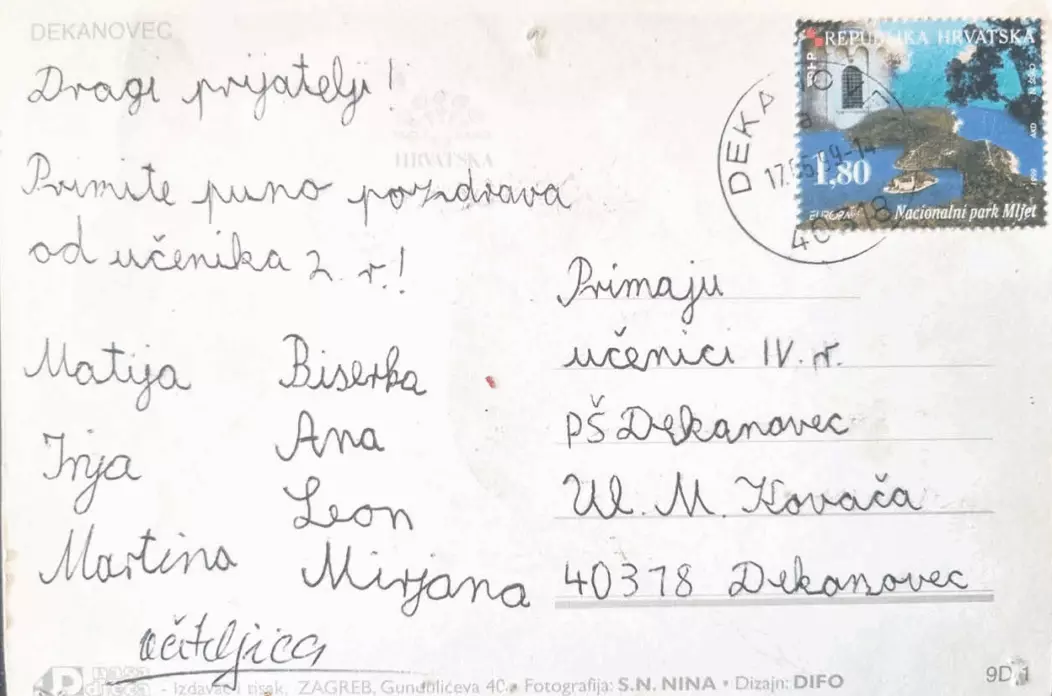 DEKANOVEC
Dragi prijatelji!
HRVATSKA
Primite puno pozdrava
od učenika 2. r.!
Matija
Irija
Martina
Biserka
Ana
Leon
Mirjana
učiteljica
REPUBLIKA HRVATSKA
1,80
Nacionalni park Mljet
17.
40318
Primaju
učenici IV. r.
PŠ Dekanovec
Ul. M. Kovača
40318 Dekanovec
Izdavač i tisak, ZAGREB, Gundulićeva 40 • Fotografija: S.N. NINA • Dizajn: DIFO
9D